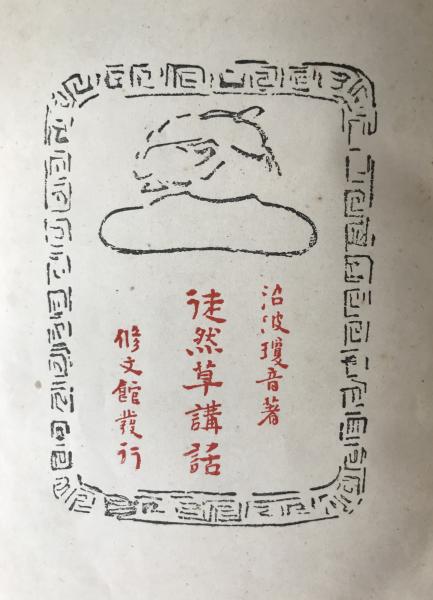 沼波瓊音著
徒然草講話
修文館發行